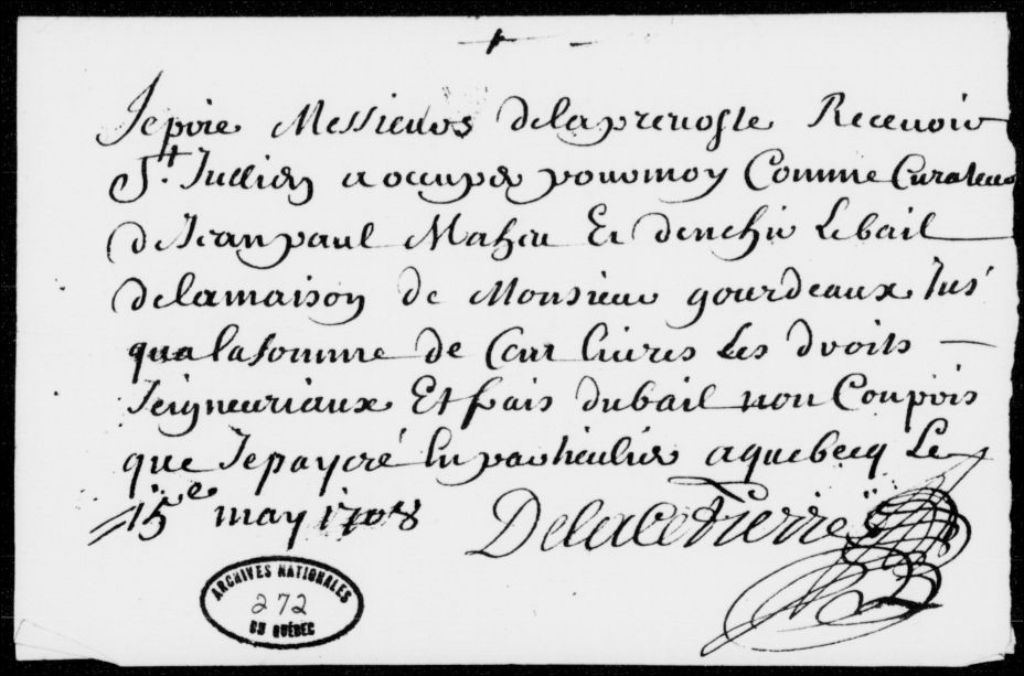 Jeprie Messieurs delaprevoste Recevoir
St. Jullien a occuper pourmoy Comme Curateur
deJean paul Maheu Et denchir Lebail
delamaison de Monsieur gourdeaux Jus
qualasomme de Cent livres Les droits —
Seigneuriaux Et frais dubail non Compris
que Jepayeré En particulier aquebecq Le
15e may 1708 DelaCetierre
ARCHIVES NATIONALES
272
DU QUÉBEC